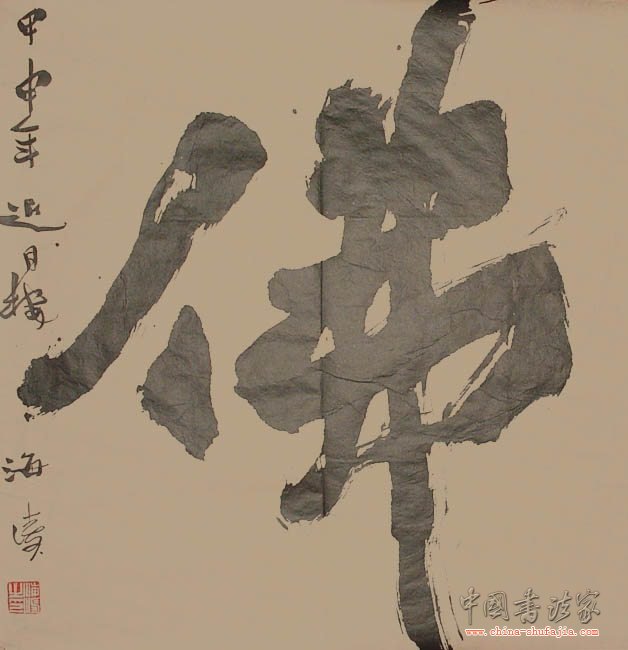 佛
甲申年
近月楼
海涛
中国书法家
www.china-shufajia.com